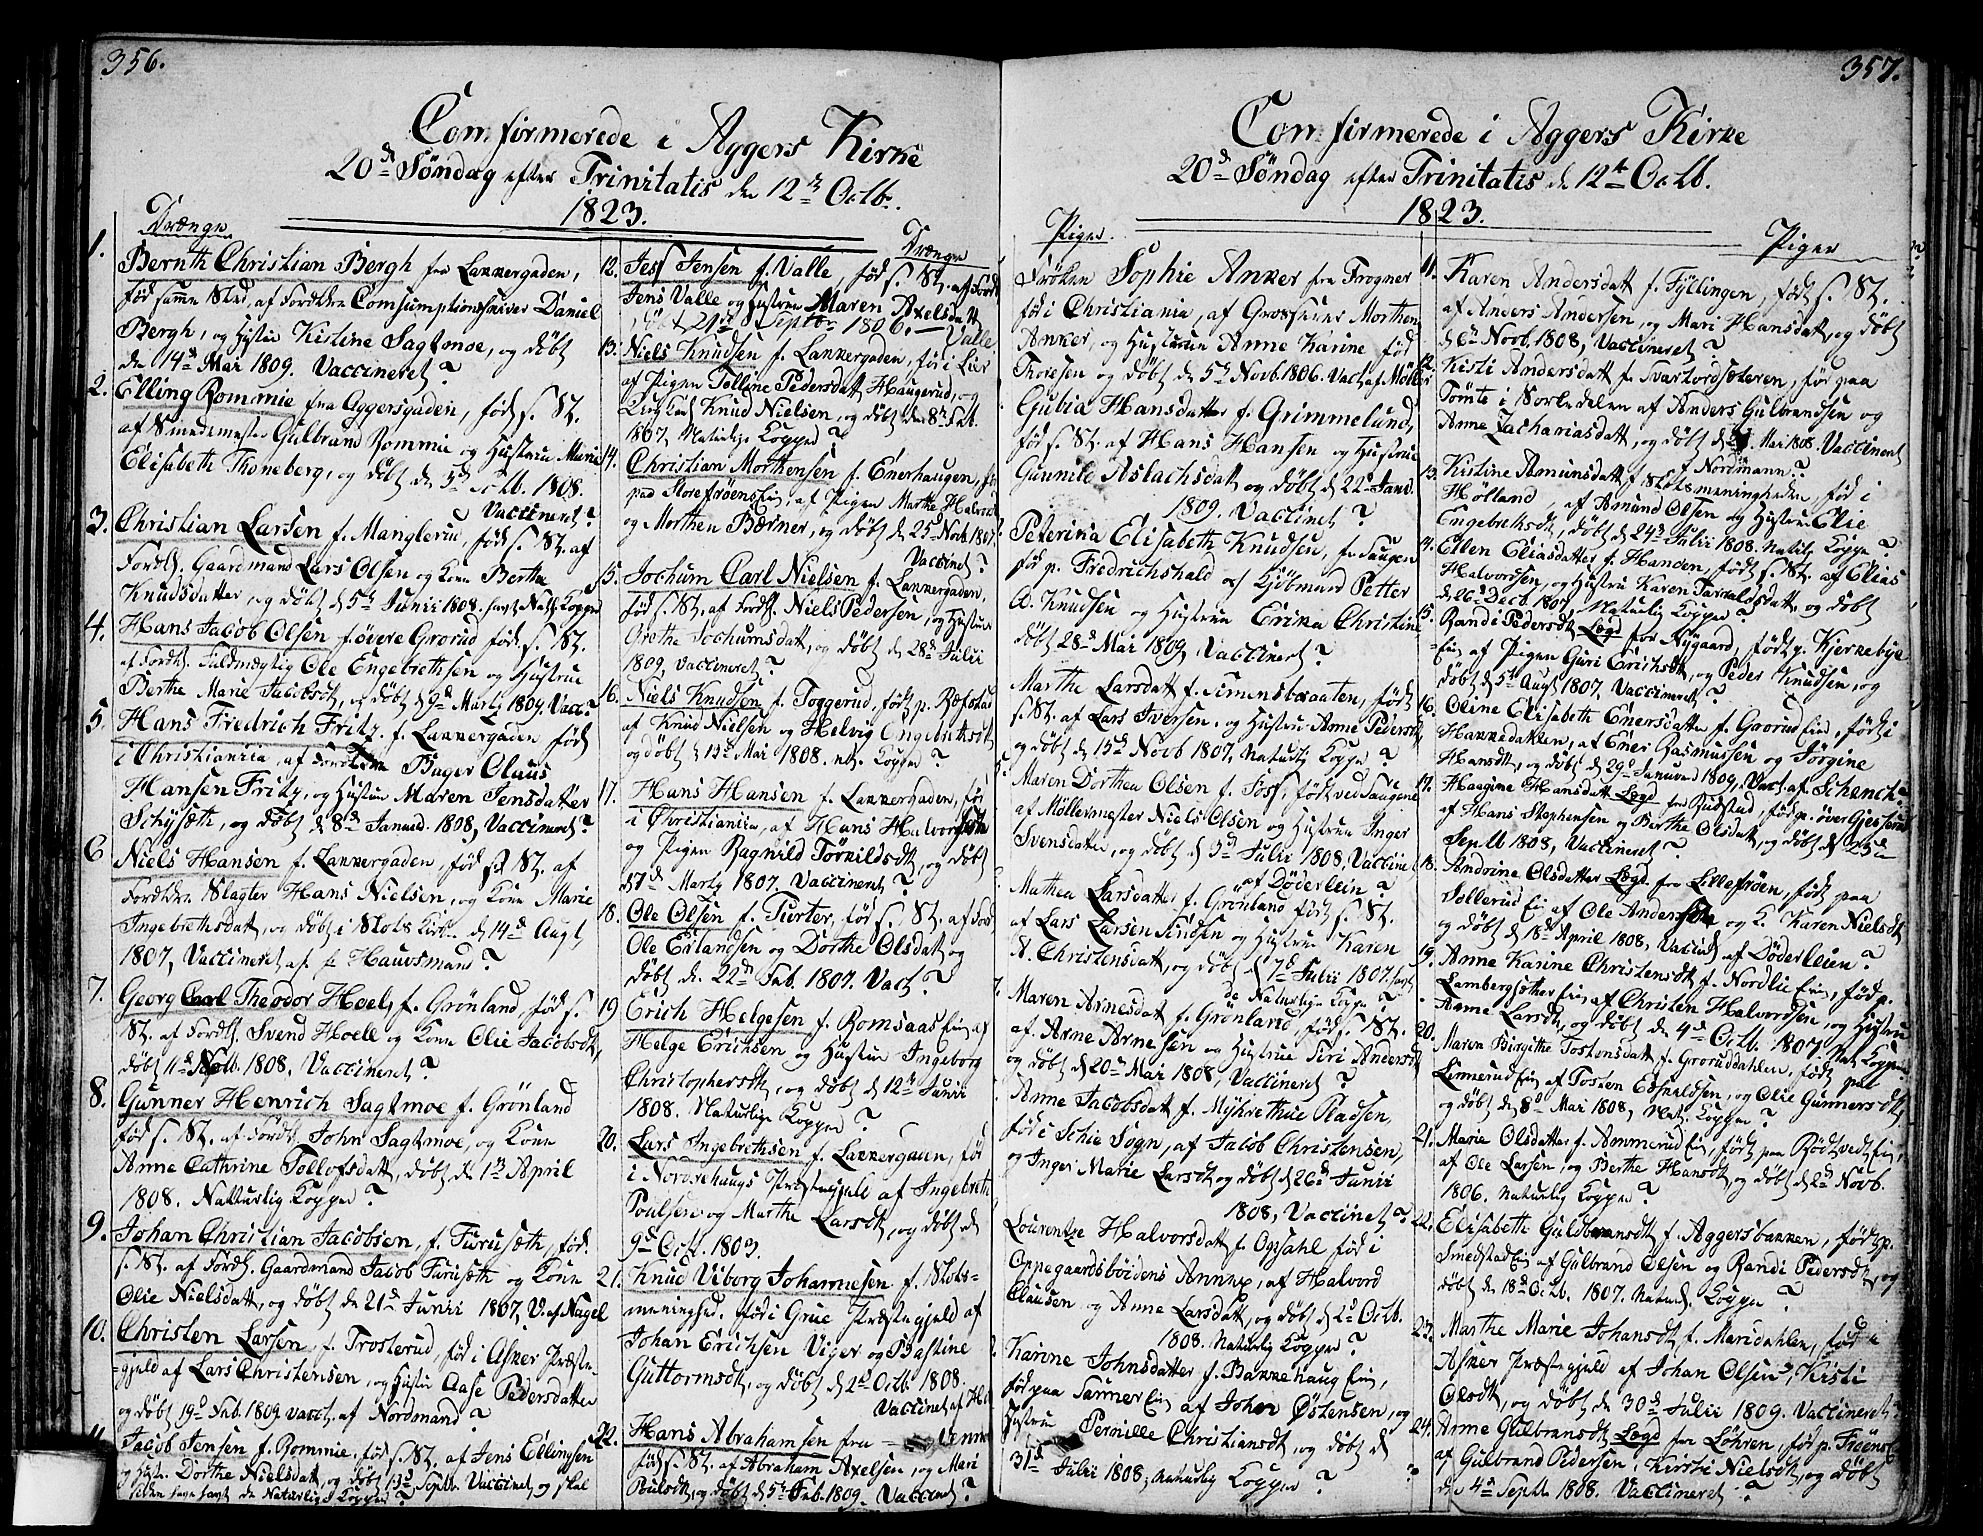 356.
Confirmerede i Aggers Kirke
20de Søndag efter Trinitatis den 12te Octb.
1823.
Drænge
1. Bernth Christian Bergh fra Lakkergaden,
fød samme Sted, af Fordtdre Comsumptionsskriver Daniel
Bergh, og Hustru Kistine Sagtmoe, og døbt
den 14de Mai 1809. Vaccineret?
2. Elling Rommie fra Aggersgaden, født s. St.
af Smedemester Gulbrand Rommie og Hustrue Marie
Elisabeth Thoneberg, og døbt den 5te Octb. 1808.
Vaccineret?
3. Christian Larsen f. Manglerud, født s. St. af
Fordtd. Gaardmand Lars Olsen og Kone Berthe
Knudsdatter, og døbt d 5te Junii 1808. havt Nat. Kopper
4. Hans Jacob Olsen f. øvere Grorud fød s. St.
af Fordtd. Fuldmægtig Ole Engebrethsen og Hustrue
Berthe Marie Jacobsdt, og døbt d 9de Marty 1809. Vacc?
5. Hans Fredrich Fritz f. Lakkergaden født
i Christiania, af Bager Olaus
Hansen Fritz, og Hustrue Maren Jensdatter
Schysæth, og døbt d 8de Januar. 1808, Vaccineret?
6 Niels Hansen f. Lakkergaden, fød s. St. af
Fordtdre Slagter Hans Nielsen, og Kone Marie
Ingebrethsdatt, og døbt i Slots Kirke den 14de Augt
1807, Vaccineret af Hauvsmand?
7. Georg Carl Theodor Hoel, f. Grønland, fød s.
St. af Fordtd. Svend Hoell og Kone Olie Jacobsdt,
døbt 11de Septb. 1808, Vaccineret?
8. Gunner Henrich Sagtmoe f. Grønland
fød s. St. af Fordtd. John Sagtmoe, og Kone
Anne Cathrine Tollofsdatt, døbt den 1te April
1808. Natturlig Kopper?
9. Johan Christian Jacobsen, f. Furusæth, fød
s. St. af Fordt. Gaardmand Jacob Furusæth og Kone
Olie Nielsdatt, og døbt den 21de Junii 1807, V. af Nagel
10. Christen Larsen f. Trosterud, fød i Asker Præste-
gjæld af Lars Christensen, og Hustru Aase Pedersdatter
og døbt 19de Feb. 1809 vacct. af Nordmand?
11. Jacob Jensen f. Rommie, fød s. St. af Jens Ellingsen
og Hustr. Dorthe Nielsdatt, og døbt 13de Septb. Vaccinet, og skal
siden have havt de Naturlige Kopper?
Drænge
12. Jess Jensen f. Valle, fød s. St. af Fordt
Jens Valle og Hustrue Maren Axelsdatt
døbt 21de Septbr 1806. Valle
13. Niels Knudsen f. Lakkergaden, fød i Lier
af Pigen Tolline Pedersdatt Haugerud, og
Ungkarl Knud Nielsen, og døbt den 8de Feb.
1807, Naturlige Kopper?
14. Christian Morthensen f. Enerhaugen, fød
paa Storefrøens Ei, af Pigen Marthe Halvord
og Morthen Bærner, og døbt d 25de Novb 1807
Vaccinet?
15. Jochum Carl Nielsen f. Lakkergaden,
fød s. St. af Fordtd. Niels Pedersen, og Hustrue
Grethe Jochumsdatt, og døbt den 28de Julii
1809, Vaccineret?
16. Niels Knudsen f. Toggerud, født p. Refstad
af Knud Nielsen og Helvig Engebrethsdt
og døbt d 15de Mai 1808. nt. Kopper?
17. Hans Hansen f. Lakkergaden, fød
i Christiania, af Hans Halvorsen
og Pigen Ragnild Torkildsdt, og døbt
d 1de Marty 1807. Vaccineret?
18. Ole Olsen f. Turter, fød s. St. af Ford
Ole Erlandsen og Dorthe Olsdatt og
døbt den 22de Feb. 1807. Vact?
19 Erich Helgesen f. Romsaas Ei, af
Helge Erichsen og Hustrue Ingeborg
Christophersdt, og døbt den 12te Junii
1808. Naturlige Kopper?
20. Lars Ingebrethsen f. Lakkergaden, fød
i Nordrehougs Præstegjeld af Ingebreth
Poulsen og Marthe Larsdt, og døbt den
9de Octb. 1803.
21. Knud Viborg Johannesen f. Slots-
meenighed, fød i Grue Præstegjeld af
Johan Erichsen Viger og Bastine
Guttormsdt, og døbt den 2de Octb. 1808.
Vaccinet af
22. Hans Abrahamsen fra
fød s. St. af Abraham Axelsen, og Mari
Poulsdt, og døbt den 5te Feb. 1809. Vaccinet?
357.
Confirmerede i Aggers Kirke
20de Søndag efter Trinitatis d 12te Octb.
1823.
Piger
Frøken Sophie Anker fra Frogner
fød i Christiania, af Grosserer Morthen
Anker, og Hustrue Anne Karine fød
Thoresen og døbt den 5te Novb. 1806. Vact. af Møller
Gubia Hansdatter f. Grimmelund,
fød s. St. af Hans Hansen og Hustrue
Gunnile Aslachsdatt og døbt den 22de Janr.
1809. Vaccinet?
Peterina Elisabeth Knudsen, fra Saugene
fød p. Fredrichshald af Kjøbmand Petter
A. Knudsen og Hustrue Erika Christine
døbt 28de Mai 1809, Vaccineret?
Marthe Larsdatt f. Simensbraaten, født
s. St. af Lars Iversen, og Hustrue Anne Pedersdt
og døbt d 15de Novb 1807, Naturlig Kopper?
Maren Dorthea Olsen f. Foss, født ved Saugene
af Møllermester Niels Olsen og Hustrue Inger
Svensdatter, og døbt d 3de Julii 1808, Vaccinet
af Døderlein
Mathea Larsdatter f. Grønland født s. St.
af Lars Larsen og Hustrue Karen
A. Christensdatt, og døbt d 7de Julii 1807. havt
de Naturlige Kopper?
Maren Arnesdat f. Grønland, født s. St.
af Arne Arnesen og Hustrue Siri Andersdt
og døbt d 20de Mai 1808, Vaccineret?
Anne Jacobsdatt f. Myhrethue Pladsen,
fød i Schie Sogn, af Jacob Christensen,
og Inger Marie Larsdt og døbt d 26de Junii
1808, Vaccinet?
Lourentze Halvorsdatt f. Opsahl fød i
Oppegaardsbøidens Annex, af Halvord
Clausen, og Anna Larsdatt, og døbt d 2de Octb.
1808. Naturlig Kopper?
Karine Johnsdatter f. Bakkehaug Ei,
fød paa Tanner Ei af John Østensen, og
Hustrue Pernille Christiansdt, og døbt d
31de Julii 1808, Naturlig Kopper?
Piger
11. Karen Andersdatt f. Fyllingen, født s. St.
af Anders Andersen, og Mari Hansdatt, og døbt
d 6te Novb. 1808, Vaccineret?
12. Kisti Andersdatt f. Svartordsæteren, fød paa
Tømte i Norledalen af Anders Gulbrandsen og
Anne Zachariasdatt, og døbt d Mai 1808. Vaccinet
f. Nordmann?
13. Kistine Amunsdatt f. Slotsmeenigheden, fød i
Hølland af Amund Olsen og Hustrue Elie
Engebrethsdt, døbt d 24de Julii 1808. Naturl. Kopper?
14. Ellen Eliasdatter f. Hanoen, født s. St. af Elias
Halvordsen, og Hustrue Karen Taraldsdatt og døbt
d 26de Decb. 1807, Naturlig Kopper?
15. Randi Pedersdt Logd fra Nygaard, født p. Kjernebye
Ei af Pigen Guri Erichsdt, og Peder Knudsen, og
døbt d 5te Augt 1807, Vaccineret?
16. Oline Elisabeth Enersdatter f. Grorud Ei, fød i
Hannedalen, af Ener Rasmussen og Jørgine
Hansdt, og døbt d 29de Januar 1809, Vacc. af Schenck?
17. Haagine Hansdatt Logd fra Rudstad, fød p. över
af Hans Stephensen og Berthe Olsdatt, og døbt d 25de
Septb 1808, Vaccineret?
18. Andrine Olsdatter Logd fra Lillefrøen, født paa
Sollerud Ei af Ole Andersen og K. Karen Nielsdt
og døbt d 18de April 1808, Vaccinet af Døderleien?
19. Anne Karine Christensdt f. Nordlie Ei, fød p.
Lambergsæther Ei, af Christen Halvordsen, og Hustrue
Anne Larsdt, og døbt den 4de Octb. 1807. Nat. Kopper
20. Maren Birgithe Tostensdatt f. Groruddahlen, født paa
Linnerud Ei af Tosten Edvaldsen, og Olie Gunnersdt,
og døbt den 8de Mai 1808, Nat. Kopper?
21. Marie Olsdatter f. Ammerud Ei, født paa Rødtvedt Ei,
af Ole Larsen, og Berthe Hansdt, og døbt d 2de Novb.
1806. Naturlig Kopper?
22. Elisabeth Guldbransdt f. Aggersbakken, født p.
Smedstad Ei af Gulbrand Olsen og Randi Pedersdt, og
døbt d 18de Octb. 1807. Naturl. Kopper?
23. Marthe Marie Johansdt f. Maridahlen, fød i
Asker Præstegjeld af Johan Olsen, Kisti
Olsdt, og døbt den 30de Julii 1809. Vaccineret?
24. Anne Gulbransdt Logd fra Löhren, fød p. Frøens Ei
af Gulbrand Pedersen, Kersti Nielsdt, og døbt
den 4de Septb. 1808. Vaccineret?